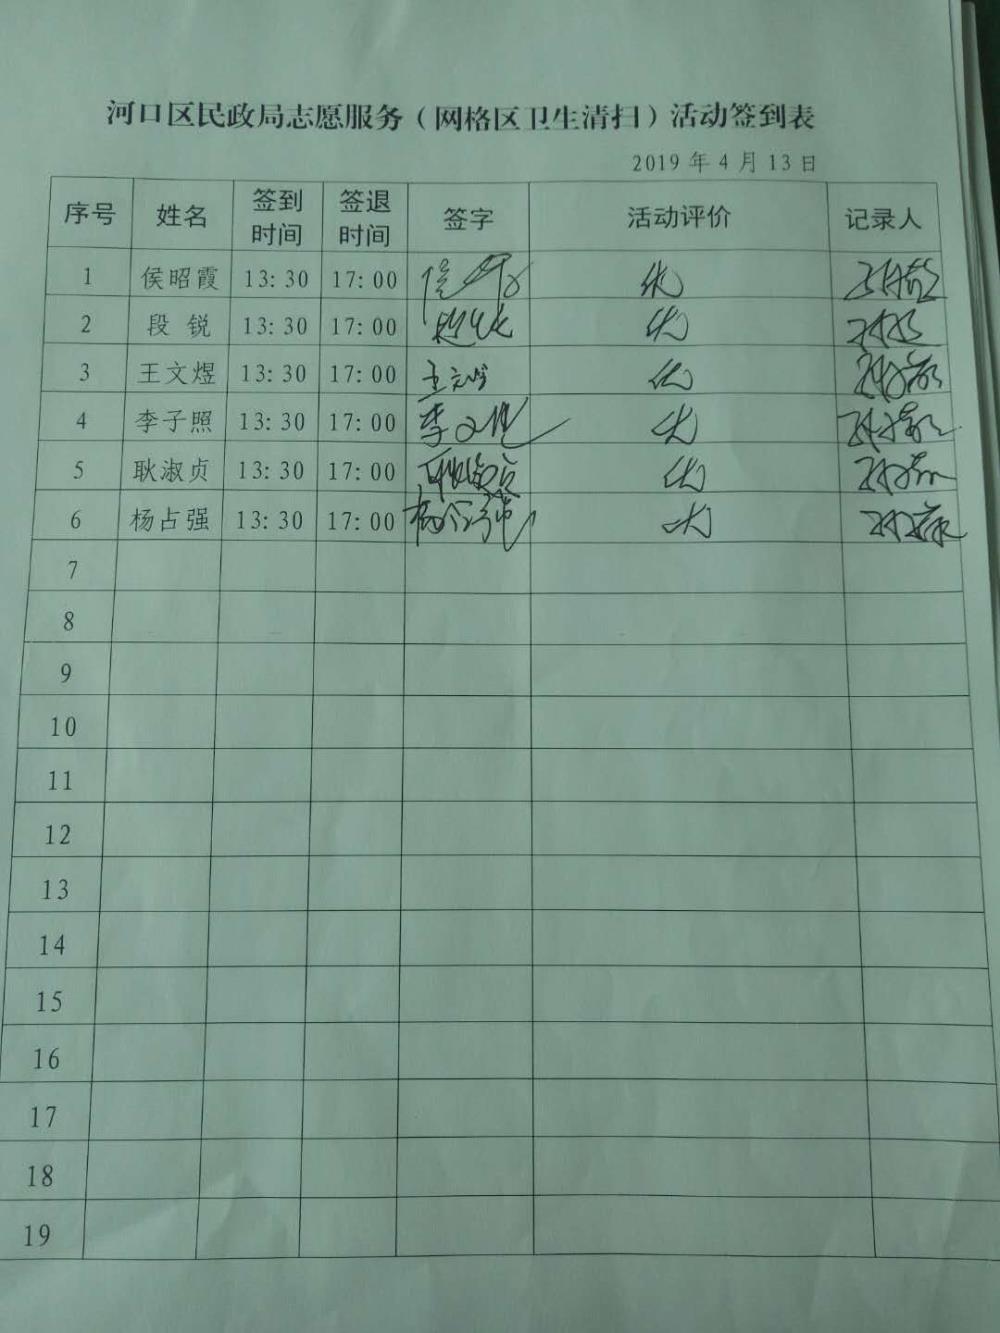 河口区民政局志愿服务（网格区卫生清扫）活动签到表
2019年4月13日
序号 姓名 签到时间 签退时间 签字 活动评价 记录人
1 侯昭霞 13:30 17:00 优
2 段 锐 13:30 17:00 优
3 王文煜 13:30 17:00 王文煜 优
4 李子照 13:30 17:00 优
5 耿淑贞 13:30 17:00 耿淑贞 优
6 杨占强 13:30 17:00 杨占强 优
7
8
9
10
11
12
13
14
15
16
17
18
19